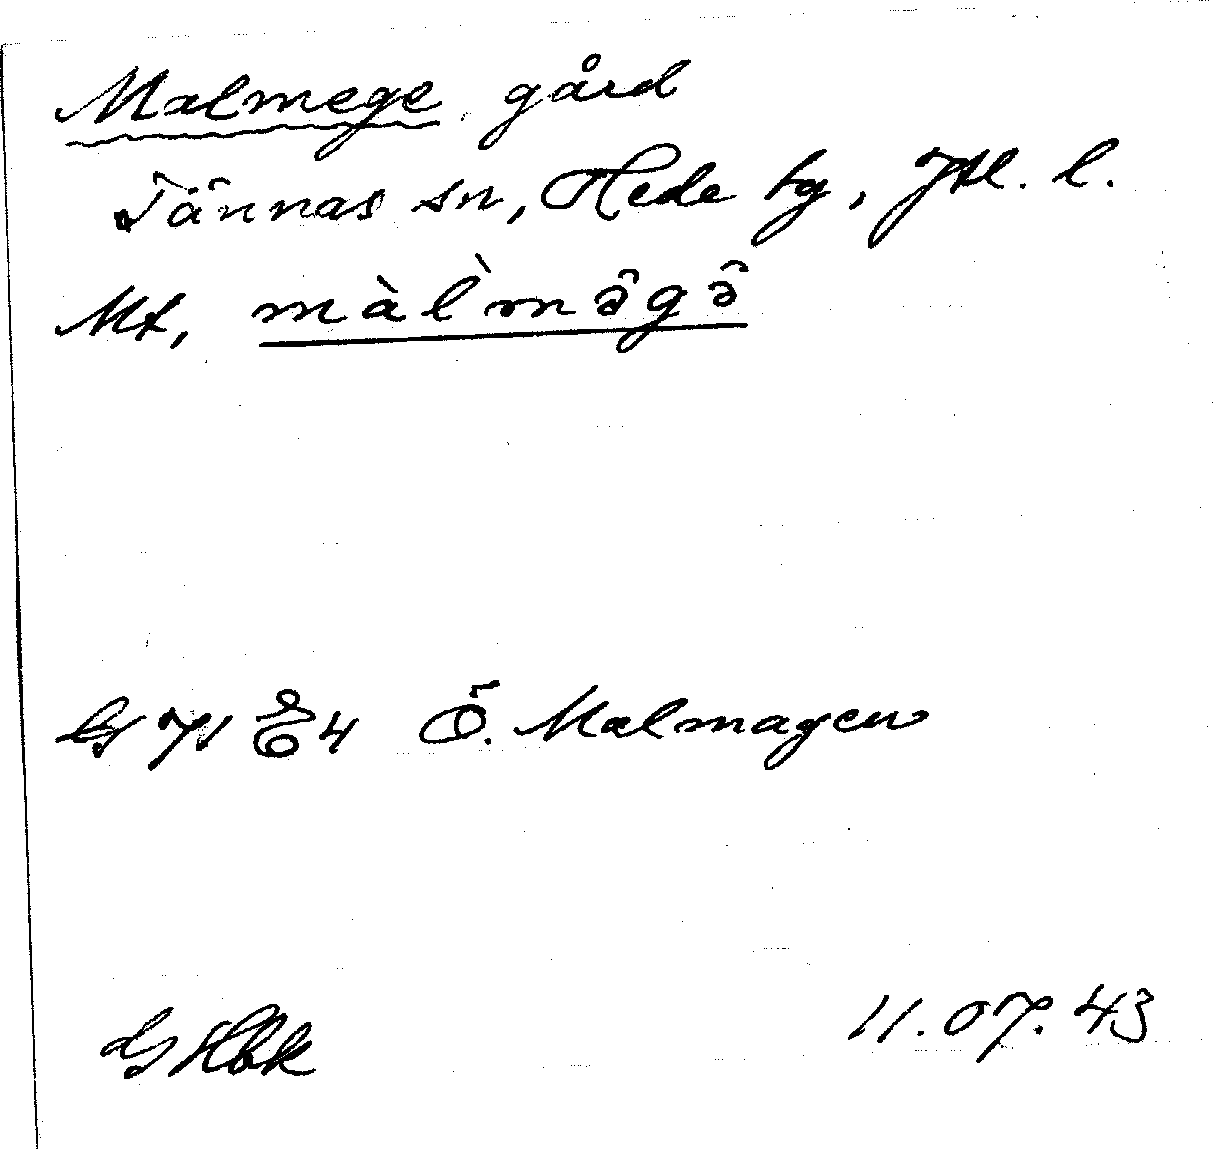 Malmege gård
Tännas sn, Hede tg, Jtl. l.
Mt, màl̀mə̂gə̂
Ö. Malmagen
GHbk 11.07.43